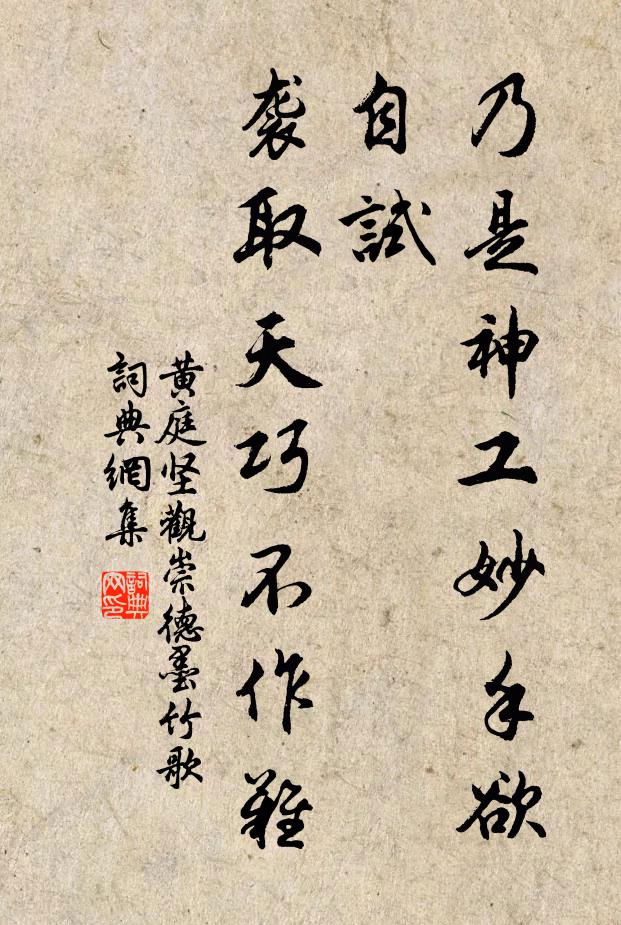 乃是神工妙手欲
自試
袭取天巧不作難
黄庭坚觀崇德墨竹歌
詞典網集
詞典
网印